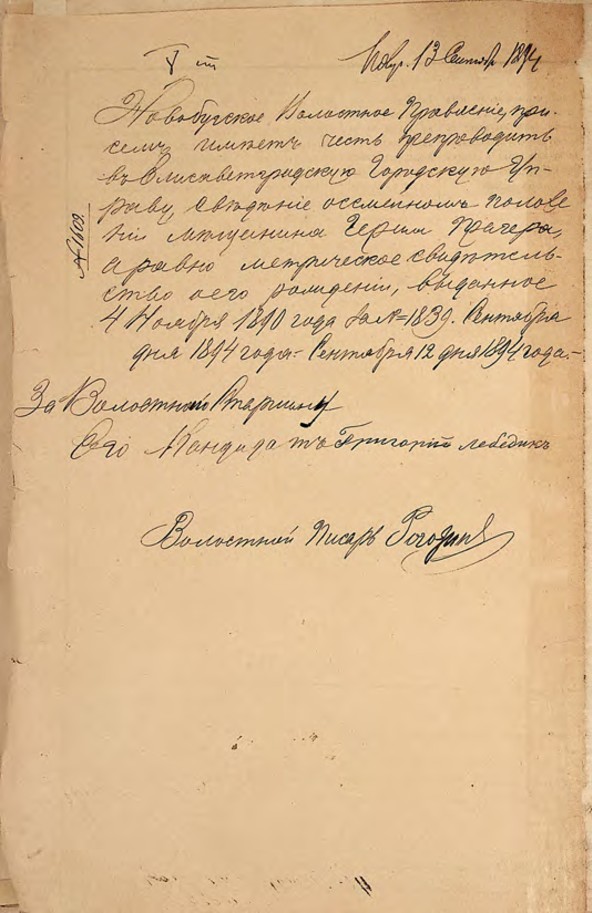 V ст
13 Сентяб. 1894
Новобугское Волостное Правление, при
семъ имѣетъ честь препроводить
въ Елисаветградскую Городскую Уп-
раву, сведѣніе о семейномъ положе
ніи мещанина Герша Прагера,
а равно метрическое свидѣтель-
ство о его рождении, выданное
4 Ноября 1890 года за № 1839. Сентября
дня 1894 года.- Сентября 12 дня 1894 года.-
№ 1609
За Волостной Старшину
Его Кандидатъ Григорій Лебедикъ
Волостной Писарь